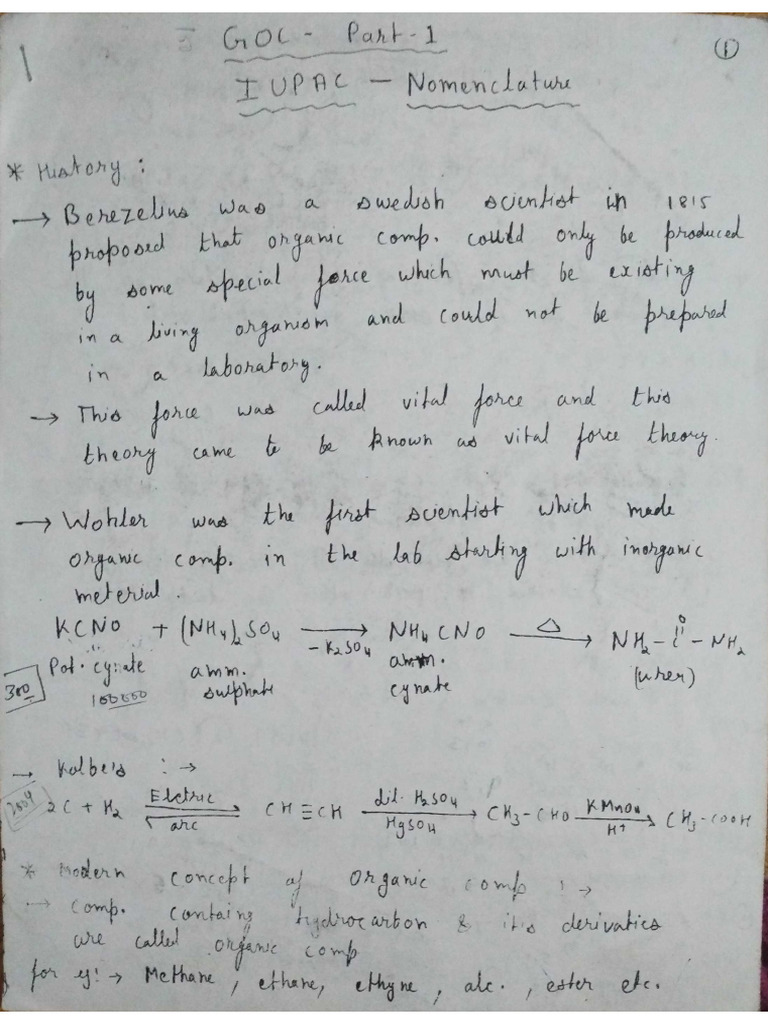 GOC - Part-1
①
IUPAC - Nomenclature
* History :
→ Berezelius was a swedish scientist in 1815
proposed that organic comp. could only be produced
by some special force which must be existing
in a living organism and could not be prepared
in a laboratory.
→ This force was called vital force and this
theory came to be known as vital force theory.
→ Wohler was the first scientist which made
organic comp. in the lab starting with inorganic
meterial.
KCNO + (NH4)2SO4 → -K2SO4 NH4CNO Δ → NH2-C-NH2
O
Pot. cynate amm. sulphate amm. cynate (urea)
300
100000
→ Kolbe's : →
2004
2C + H2 Elctric arc ⇌ CH≡CH dil. H2SO4 HgSO4 → CH3-CHO KMnO4 H+ → CH3-COOH
* Modern concept of organic comp : →
→ comp. containg hydrocarbon & it's derivatics
are called organic comp
for eg: → Methane, ethane, ethyne, alc., ester etc.